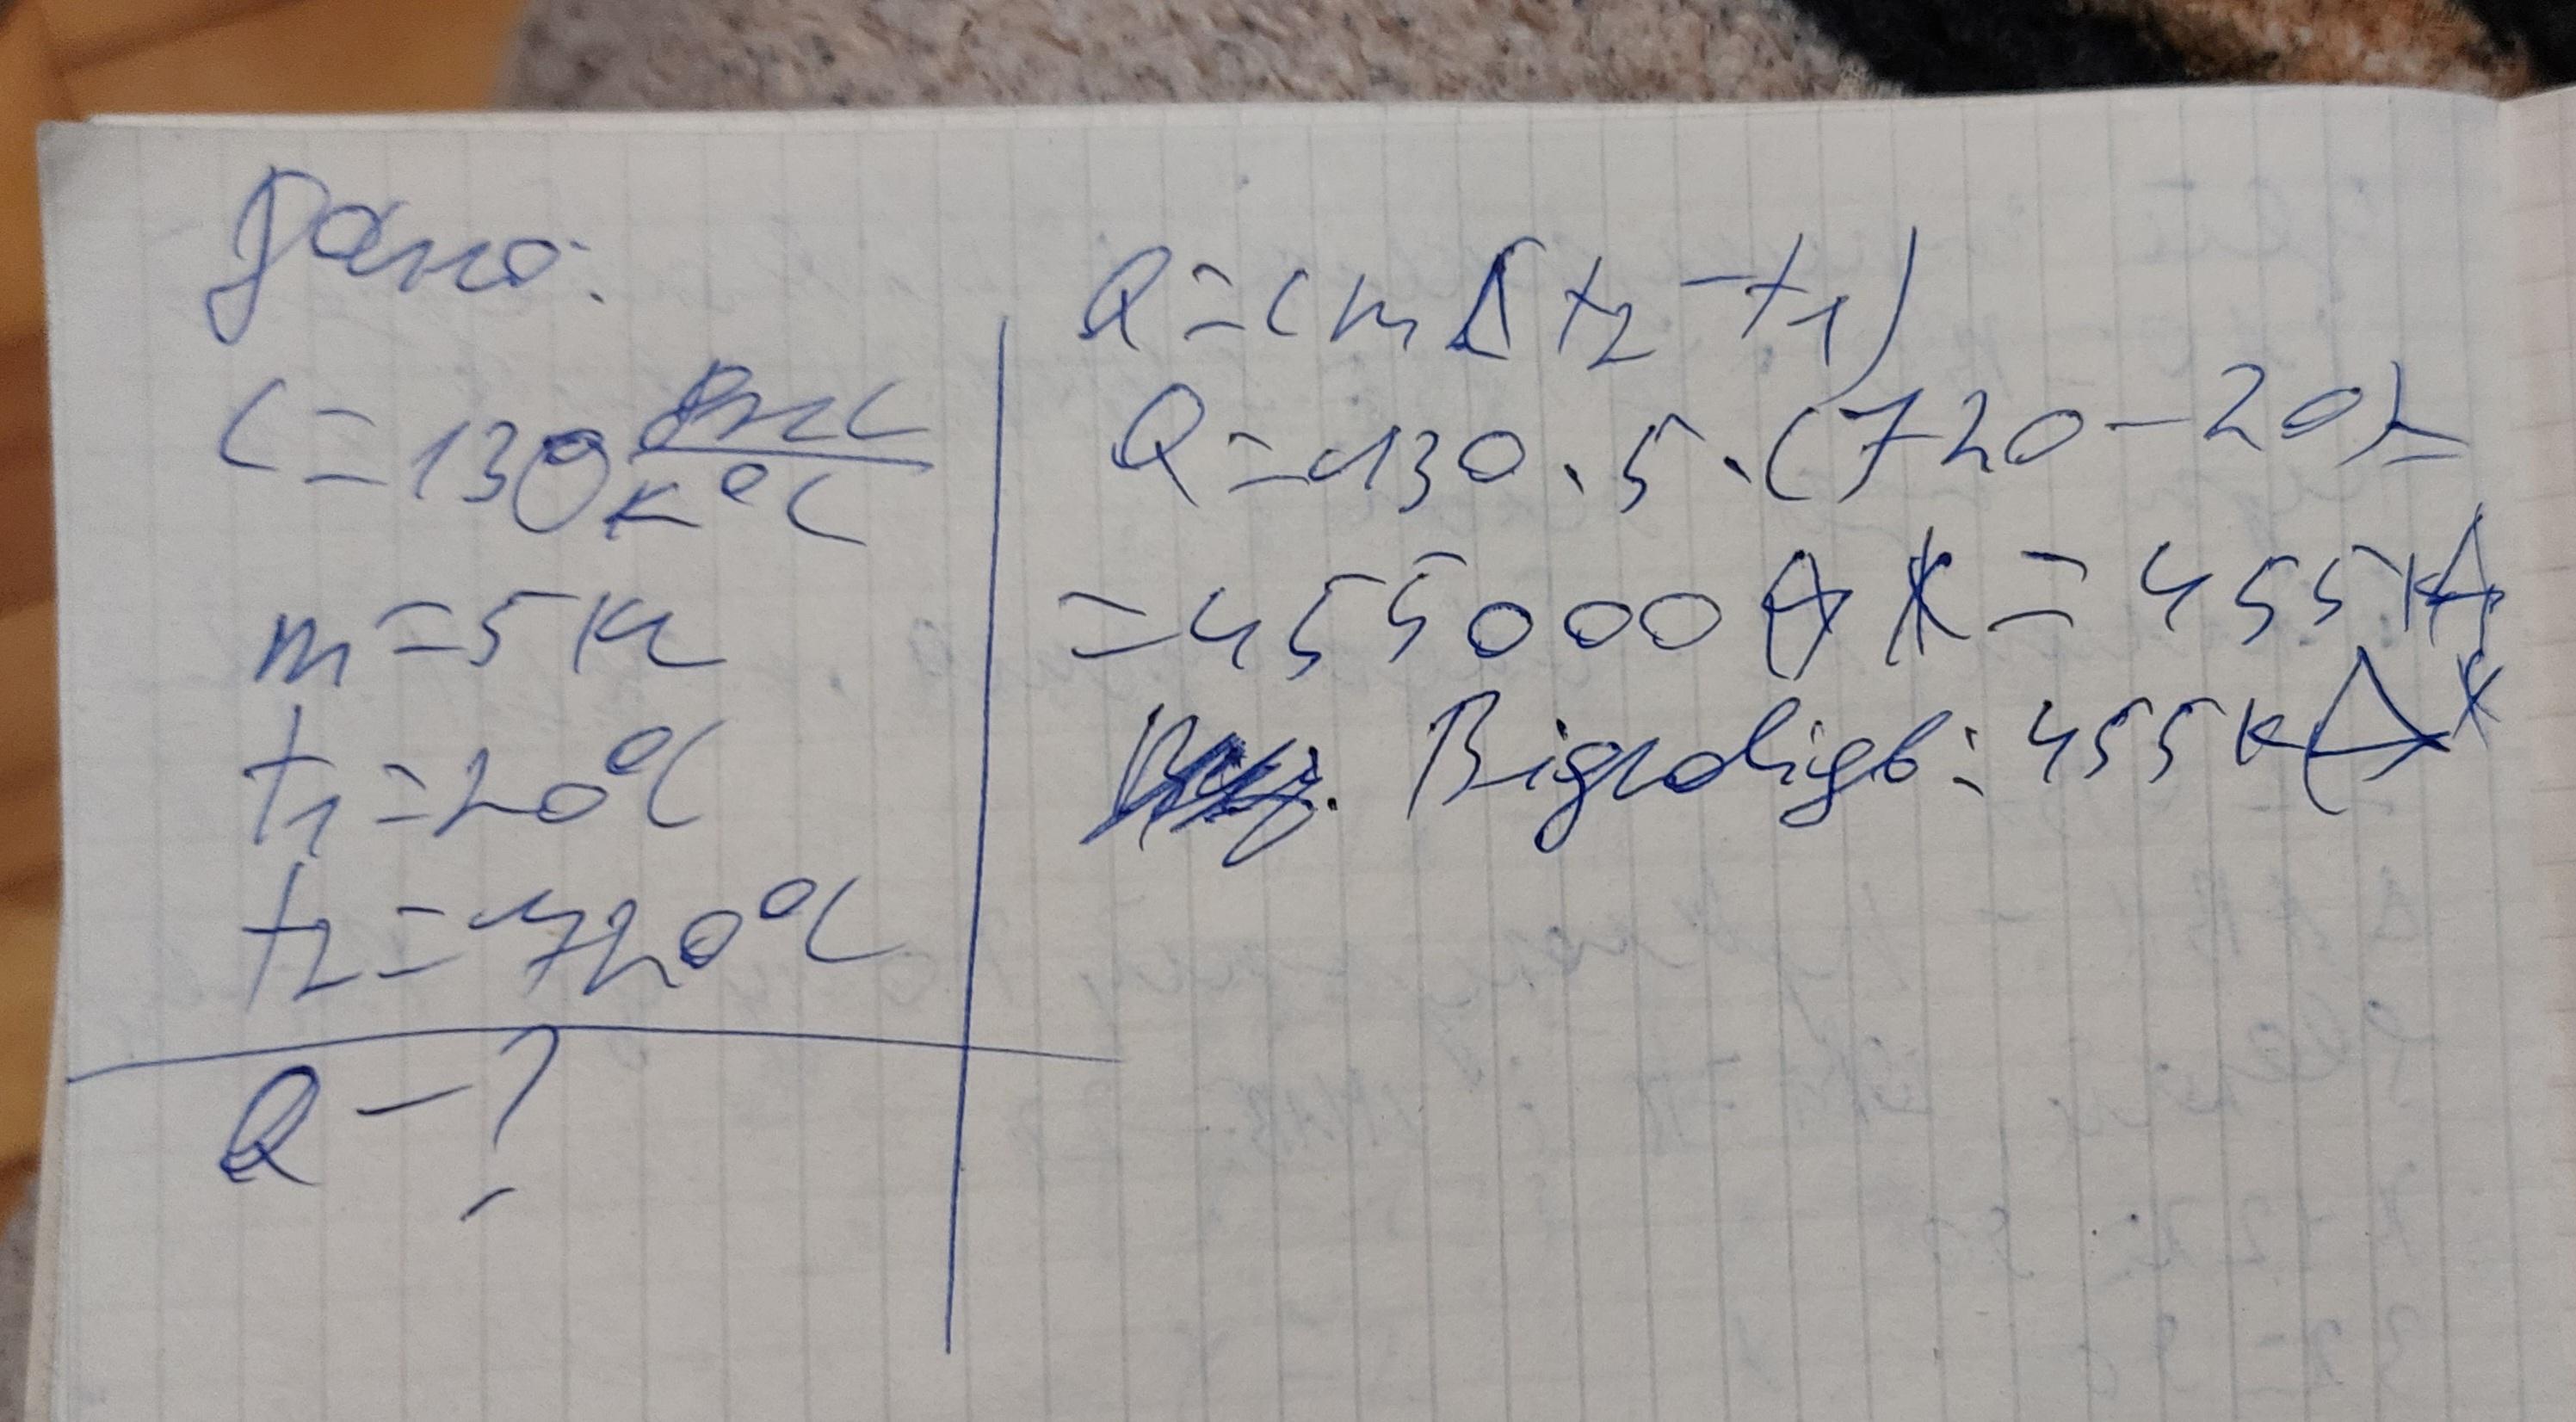 Дано:
c = 130 Дж/к°C
m = 5 кг
t₁ = 20°C
t₂ = 720°C
Q - ?
Q = cmΔt₂ - t₁)
Q = 130 · 5 · (720 - 20) =
= 455000 Дж = 455 кД
Відповідь: 455 кДж